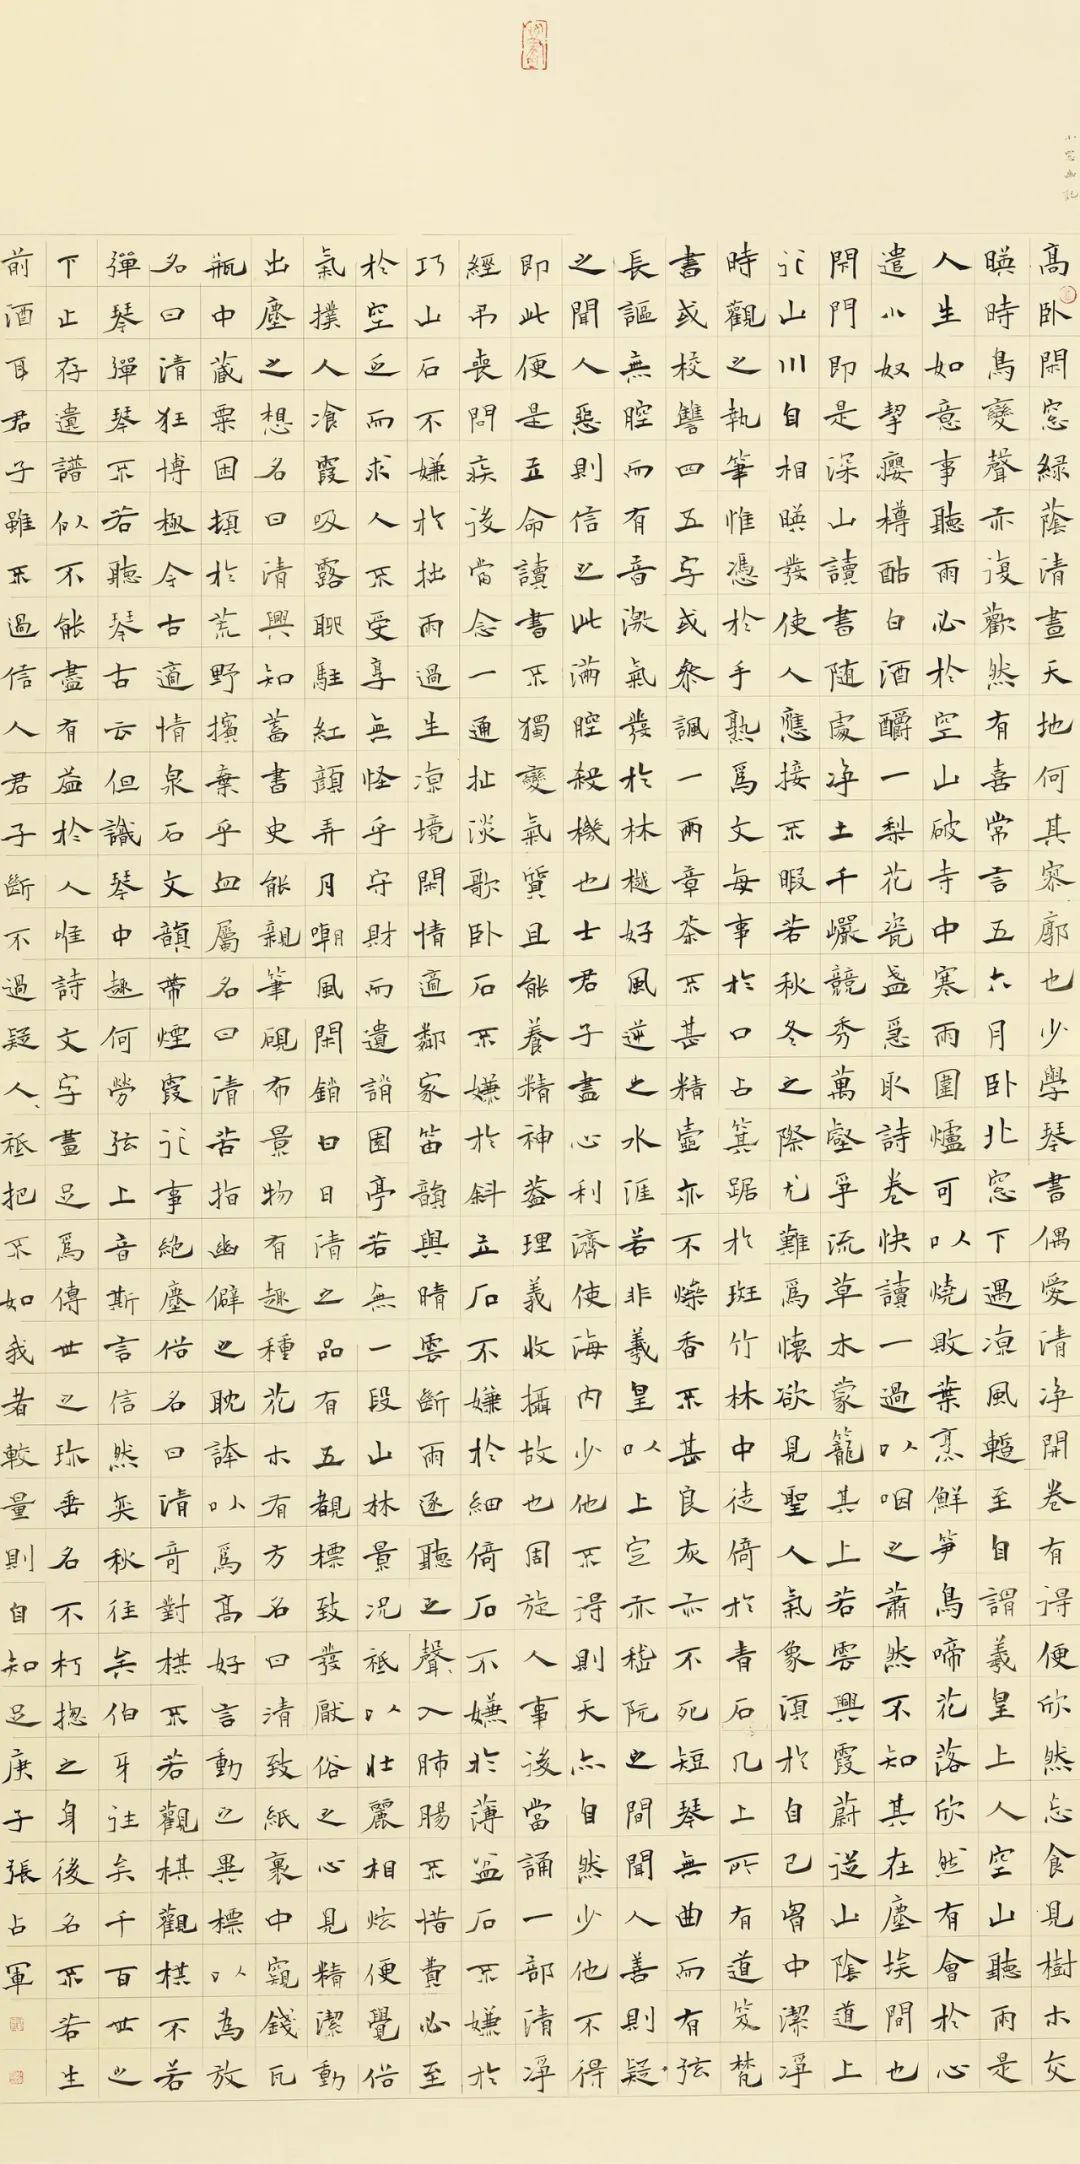 小窓幽記
高卧閑窓綠蔭清晝天地何其寥廓也少學琴書偶愛清净開卷有得便欣然忘食見樹木交
暎時鳥變聲亦復歡然有喜常言五六月卧北窓下遇凉風蹔至自謂羲皇上人空山聽雨是
人生如意事聽雨必於空山破寺中寒雨圍爐可以燒敗葉烹鮮笋鳥啼花落欣然有會於心
遣小奴挈癭樽酤白酒釂一梨花瓷盞急取詩卷快讀一過以咽之蕭然不知其在塵埃間也
閑門即是深山讀書随處净土千巖競秀萬壑爭流草木蒙籠其上若雲興霞蔚從山陰道上
行山川自相暎發使人應接不暇若秋冬之際尤難爲懷欲見聖人氣象湏於自己胷中潔淨
時觀之執筆惟憑於手熟爲文每事於口占箕踞於斑竹林中徙倚於青石几上所有道笈梵
書或校讐四五字或參諷一兩章茶不甚精壺亦不燥香不甚良灰亦不死短琴無曲而有弦
長謳無腔而有音激氣發於林樾好風逆之水涯若非羲皇以上定亦嵇阮之間聞人善則疑
之聞人惡則信之此滿腔殺機也士君子盡心利濟使海内少他不得則天亦自然少他不得
即此便是立命讀書不獨變氣質且能養精神蓋理義收攝故也周旋人事後當誦一部清淨
經弔喪問疾後當念一通扯淡歌卧石不嫌於斜立石不嫌於細倚石不嫌於薄盆石不嫌於
巧山石不嫌於拙雨過生凉境閑情適鄰家笛韻與晴雲斷雨逐聽之聲入肺腸不惜費必至
於空乏而求人不受享無怪乎守財而遺誚園亭若無一段山林景況祗以壯麗相炫便覺俗
氣撲人飡霞吸露聊駐紅顔弄月嘲風閑銷白日清之品有五覩標致發厭俗之心見精潔動
出塵之想名曰清興知蓄書史能親筆硯布景物有趣種花木有方名曰清致紙裹中窺錢瓦
瓶中藏粟困頓於荒野擯棄乎血屬名曰清苦指幽僻之耽誇以爲高好言動之異標以為放
名曰清狂博極今古適情泉石文韻帶煙霞行事絶塵俗名曰清奇對棋不若觀棋觀棋不若
彈琴彈琴不若聽琴古云但識琴中趣何勞弦上音斯言信然奕秋往矣伯牙往矣千百世之
下止存遺譜似不能盡有益於人惟詩文字畫足爲傳世之珎垂名不朽揔之身後名不若生
前酒耳君子雖不過信人君子斷不過疑人祗把不如我者較量則自知足庚子張占軍